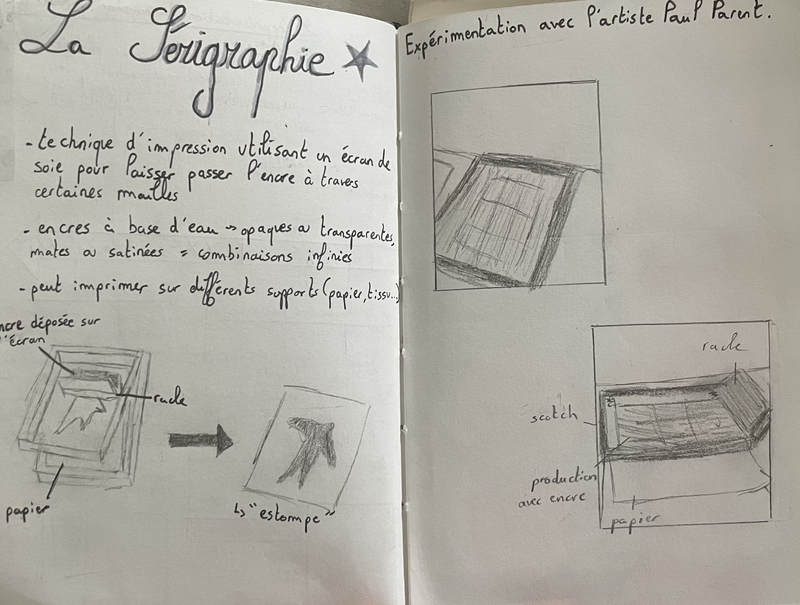 La Sérigraphie
- technique d'impression utilisant un écran de
soie pour laisser passer l'encre à travers
certaines mailles
- encres à base d'eau → opaques ou transparentes,
mates ou satinées = combinaisons infinies
- peut imprimer sur différents supports (papier, tissu...)
ncre déposée sur
l'écran
racle
papier
↳ "estompe"
Expérimentation avec l'artiste Paul Parent.
racle
scotch
production
avec encre
papier